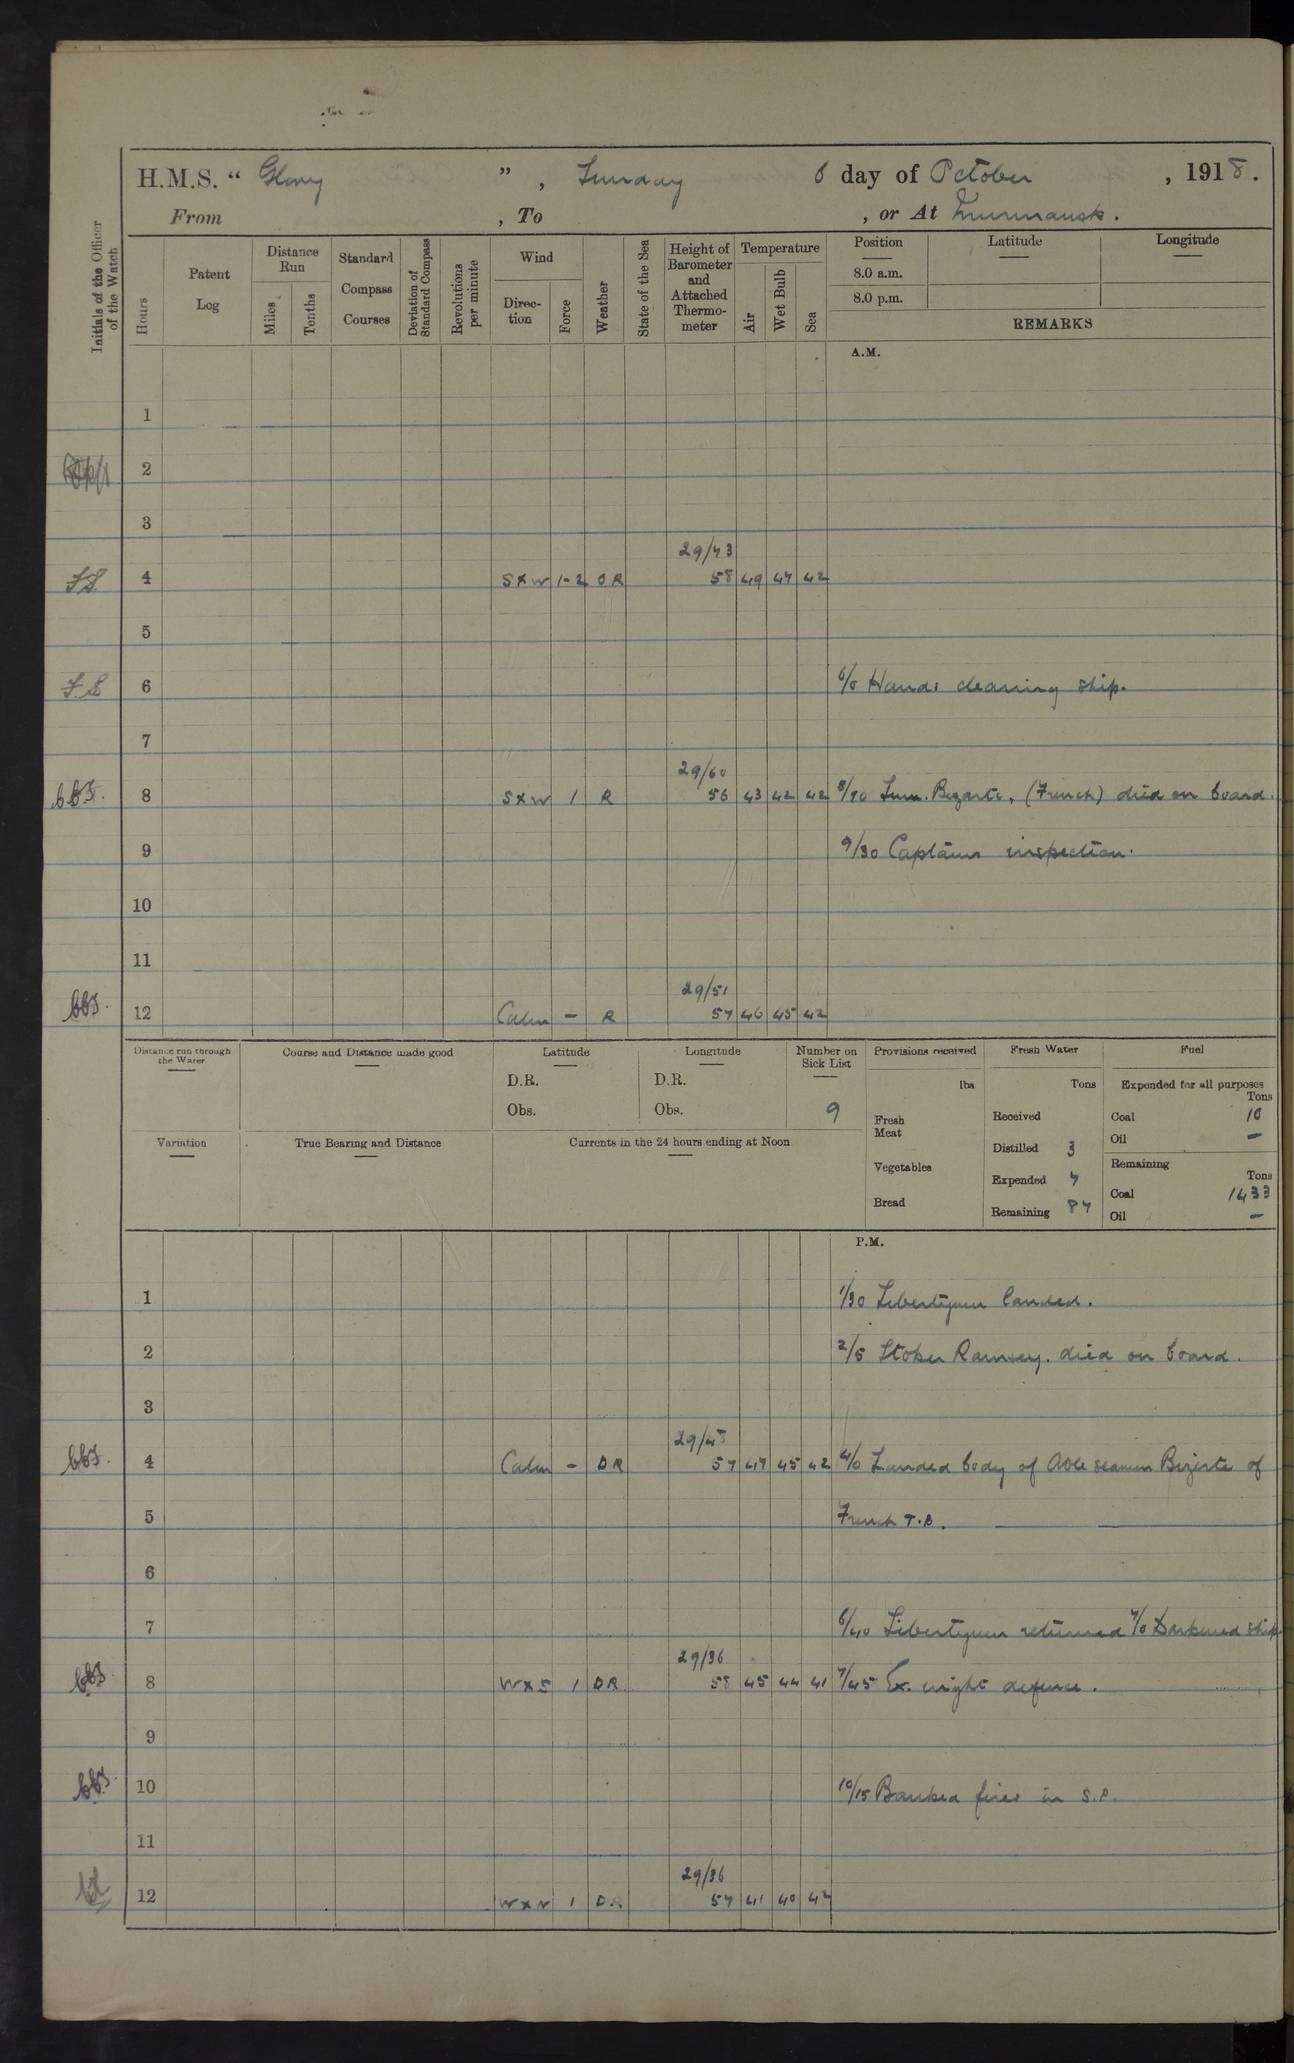 H.M.S. “ Glory ” , Sunday 6 day of October , 1918 .
From , To , or At Murmansk .
Initials of the Officer of the Watch
Hours
Patent Log
Distance Run
Miles
Tenths
Standard Compass Courses
Deviation of Standard Compass
Revolutions per minute
Wind
Direc- tion
Force
Weather
State of the Sea
Height of Barometer and Attached Thermo- meter
Temperature
Air
Wet Bulb
Sea
Position
Latitude
Longitude
8.0 a.m.
8.0 p.m.
REMARKS
A.M.
1
2
3
29/43
4 SxW 1-2 OR 58 49 47 42
5
6 6/0 Hands cleaning ship.
7
29/60
8 SxW 1 R 56 43 42 42 8/20 Bizarte, (French) died on board.
9 9/30 Captains inspection.
10
11
29/51
12 Calm – R 57 46 45 42
Distance run through the Water
Course and Distance made good
Latitude
D.R.
Obs.
Longitude
D.R.
Obs.
Number on Sick List
9
Provisions received
lbs.
Fresh Meat
Vegetables
Bread
Fresh Water
Tons
Received
Distilled 3
Expended 7
Remaining 87
Fuel
Expended for all purposes
Tons
Coal 10
Oil –
Remaining
Tons
Coal 1433
Oil –
Variation
True Bearing and Distance
Currents in the 24 hours ending at Noon
P.M.
1 1/30 Libertymen landed.
2 2/5 Stoker Ramsey. died on board.
3
29/45
4 Calm – OR 57 47 45 42 4/0 Landed body of Able seaman Bizirte of
5 French T.B.
6
7 6/40 Libertymen returned 7/0 Darkened ship.
29/36
8 WxS 1 OR 58 45 44 41 7/45 Ex. night defence.
9
10 10/15 Banked fires in S.P.
11
29/36
12 WxN 1 OR 57 41 40 42